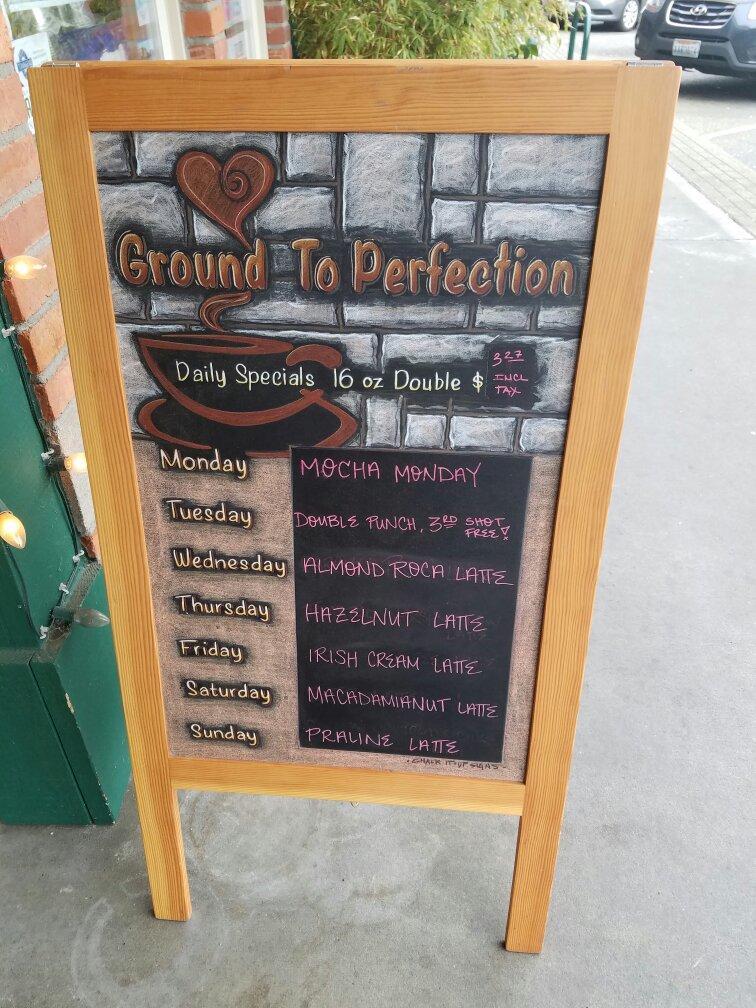 Ground To Perfection
Daily Specials 16 oz Double $ 3.27
INCL
TAX
Monday MOCHA MONDAY
Tuesday DOUBLE PUNCH, 3RD SHOT FREE!
Wednesday ALMOND ROCA LATTE
Thursday HAZELNUT LATTE
Friday IRISH CREAM LATTE
Saturday MACADAMIANUT LATTE
Sunday PRALINE LATTE
- CHALK IT UP SIGNS -